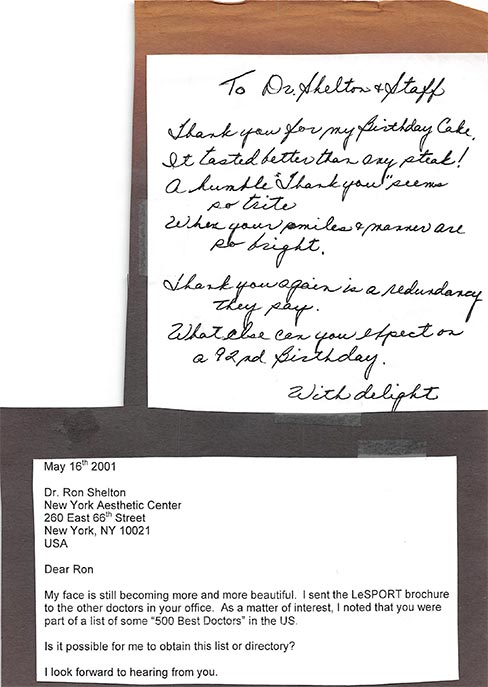 To Dr. Shelton & Staff
Thank you for my Birthday Cake.
It tasted better than any steak!
A humble "Thank you" seems
so trite
When your smiles & manner are
so bright.
Thank you again is a redundancy
they say.
What else can you expect on
a 92nd Birthday.
With delight
May 16th 2001
Dr. Ron Shelton
New York Aesthetic Center
260 East 66th Street
New York, NY 10021
USA
Dear Ron
My face is still becoming more and more beautiful. I sent the LeSPORT brochure
to the other doctors in your office. As a matter of interest, I noted that you were
part of a list of some "500 Best Doctors" in the US.
Is it possible for me to obtain this list or directory?
I look forward to hearing from you.